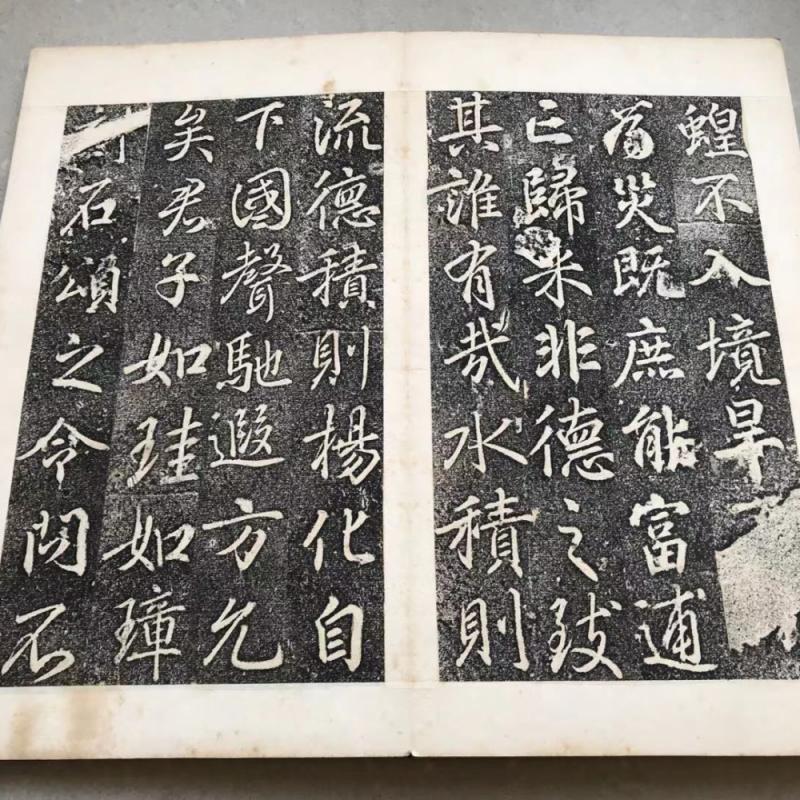 蝗不入境旱
為災既庶能富逋
亡歸来非德之致
其誰有哉水積則
流德積則楊化自
下國聲馳遐方允
矣君子如珪如璋
石頌之令問不